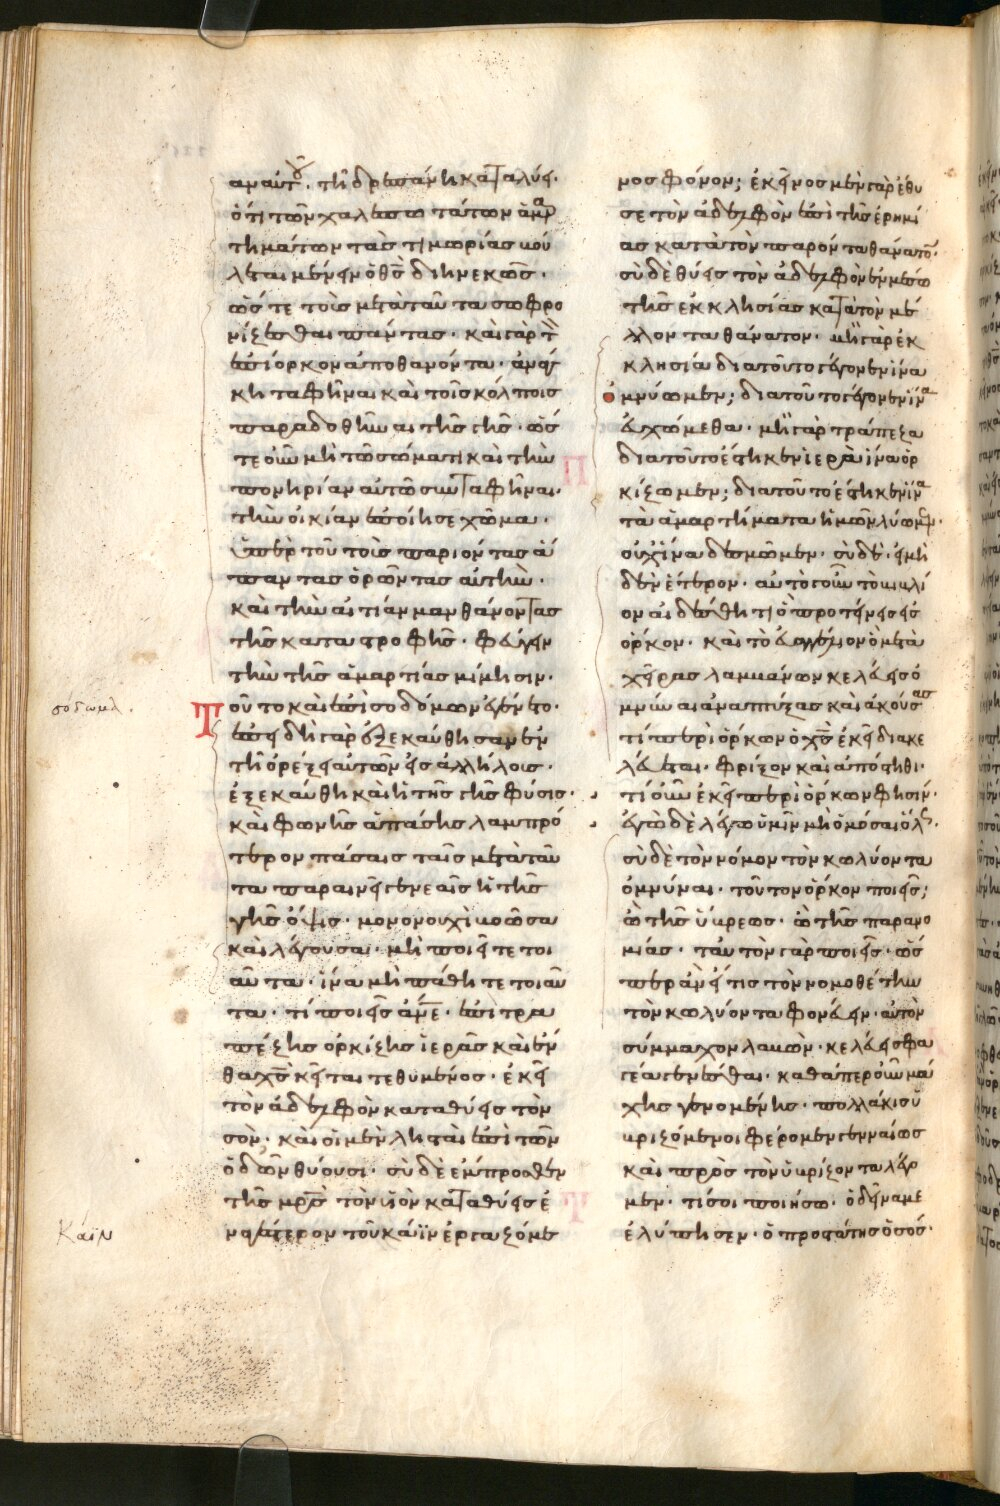 αν αυτοῦ. τῆ δρεπάνη καταλύει.
ὅτι τῶν χαλεπωτάτων ἁμαρ
τημάτων τὰς τιμωρίας βού
λεται μένειν ὁ θς διηνεκῶς.
ὥστε τοῖς μετὰ ταῦτα σωφρο
νίζεσθαι πάντας. καὶ γὰρ τὸ
ἐπίορκον ἀποθανόντα. ἀνάγ
κη ταφῆναι καὶ τοῖς κόλποις
παραδοθῆναι τῆς γῆς. ὥσ
τε οὖν μὴ τῶ σώματι καὶ τὴν
πονηρίαν αὐτῶ συνταφῆναι.
τὴν οἰκίαν ἐποίησε χῶμα.
ὑπὲρ τοῦ τοὺς παριόντας ἅ
παντας ὁρῶντας αὐτὴν.
καὶ τὴν αἰτίαν μανθάνοντας
τῆς καταστροφῆς. φεύγειν
τὴν τῆς ἁμαρτίας μίμησιν.
Τοῦτο καὶ ἐπὶ σοδόμων ἐγένετο.
ἐπειδὴ γὰρ ἐξεκαύθησαν ἐν
τῆ ὀρέξει αὐτῶν εἰς ἀλλήλους.
ἐξεκαύθη καὶ ἡ τῆς γῆς φύσις.
καὶ φωνῆς ἁπάσης λαμπρό
τερον πάσαις ταῖς μετὰ ταῦ
τα παραινεῖ γενεαῖς ἡ τῆς
γῆς ὄψις. μονονουχὶ βοῶσα
καὶ λέγουσα. μὴ ποιεῖτε τοι
αῦτα. ἵνα μὴ πάθητε τοιαῦ
τα. τί ποιεῖς ἄνε. ἐπὶ τρα
πέζης ὁρκίζεις ἱερᾶς καὶ ἔν
θα χς κεῖται τεθυμένος. ἐκεῖ
τὸν ἀδελφὸν καταθύεις τὸν
σὸν. καὶ οἱ μὲν λησταὶ ἐπὶ τῶν
ὁδῶν θύουσι. σὺ δὲ ἔμπροσθεν
τῆς μρς τὸν υἱὸν καταθύεις ἐ
ναγέτερον τοῦ κάϊν ἐργαζόμε
νος φόνον; ἐκεῖνος μὲν γὰρ ἔθυ
σε τὸν ἀδελφὸν ἐπὶ τῆς ἐρημί
ας κατὰ τὸν παρόντα θάνατον.
σὺ δὲ θύεις τὸν ἀδελφὸν ἐν μέσω
τῆς ἐκκλησίας κατὰ τὸν μέ
λλοντα θάνατον. μὴ γὰρ ἐκ
κλησία διατοῦτο γέγονεν ἵνα
ὀμνύωμεν; διατοῦτο γέγονεν ἵνα
εὐχώμεθα. μὴ γὰρ τράπεζα
διατοῦτο ἕστηκεν ἱερὰ ἵνα ὁρ
κίζωμεν; διατοῦτο ἕστηκεν ἵνα
τὰ ἁμαρτήματα ἡμῶν λύωμεν.
οὐχ ἵνα δεσμῶμεν. σὺ δὲ. εἰ μὴ
δὲν ἕτερον. αὐτὸ γοῦν τὸ βιβλί
ον αἰδέσθητι ὃ προτείνεις εἰς
ὅρκον. καὶ τὸ εὐαγγέλιον ὃ μετὰ
χεῖρας λαμβάνων κελεύεις ὀ
μνύναι ἀναπτύξας καὶ ἀκούσας
τί περὶ ὅρκων ὁ χς ἐκεῖ διαλε
λέεται. φρίξον καὶ ἀπόστηθι.
τί οὖν ἐκεῖ περὶ ὅρκων φησίν.
ἐγὼ δὲ λέγω ὑμῖν μὴ ὀμόσαι ὅλως.
σὺ δὲ τὸν νόμον τὸν κωλύοντα
ὀμνύναι. τοῦτον ὅρκον ποιεῖς;
ὢ τῆς ὕβρεως. ὢ τῆς παρανο
μίας. ταυτὸν γὰρ ποιεῖς. ὥσ
περ ἂν εἴ τις τὸν νομοθέτην
τὸν κωλύοντα φονεύειν. αὐτὸν
σύμμαχον λαβὼν. κελεύεις σφα
γέα γενέσθαι. καθάπερ οὖν μά
χης γενομένης. πολλάκις ὑ
βριζόμενοι φέρομεν γενναίως
καὶ πρὸς τὸν ὑβρίζοντα λέγο
μεν. τί σοι ποιήσω. ὁ δεῖνα με
ἐλύπησεν. ὁ προστάτης ὁ σός.
σόδομα.
Κάϊν